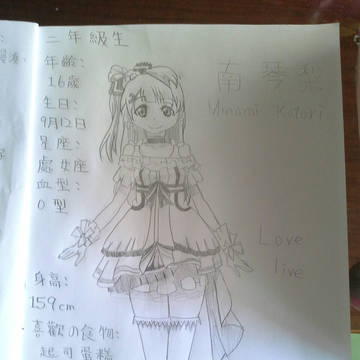 二年級生
年齡:
16歲
生日:
9月12日
星座:
處女座
血型:
O型
身高:
159cm
喜歡の食物:
起司蛋糕
南琴梨
Minami Kotori
Love
live